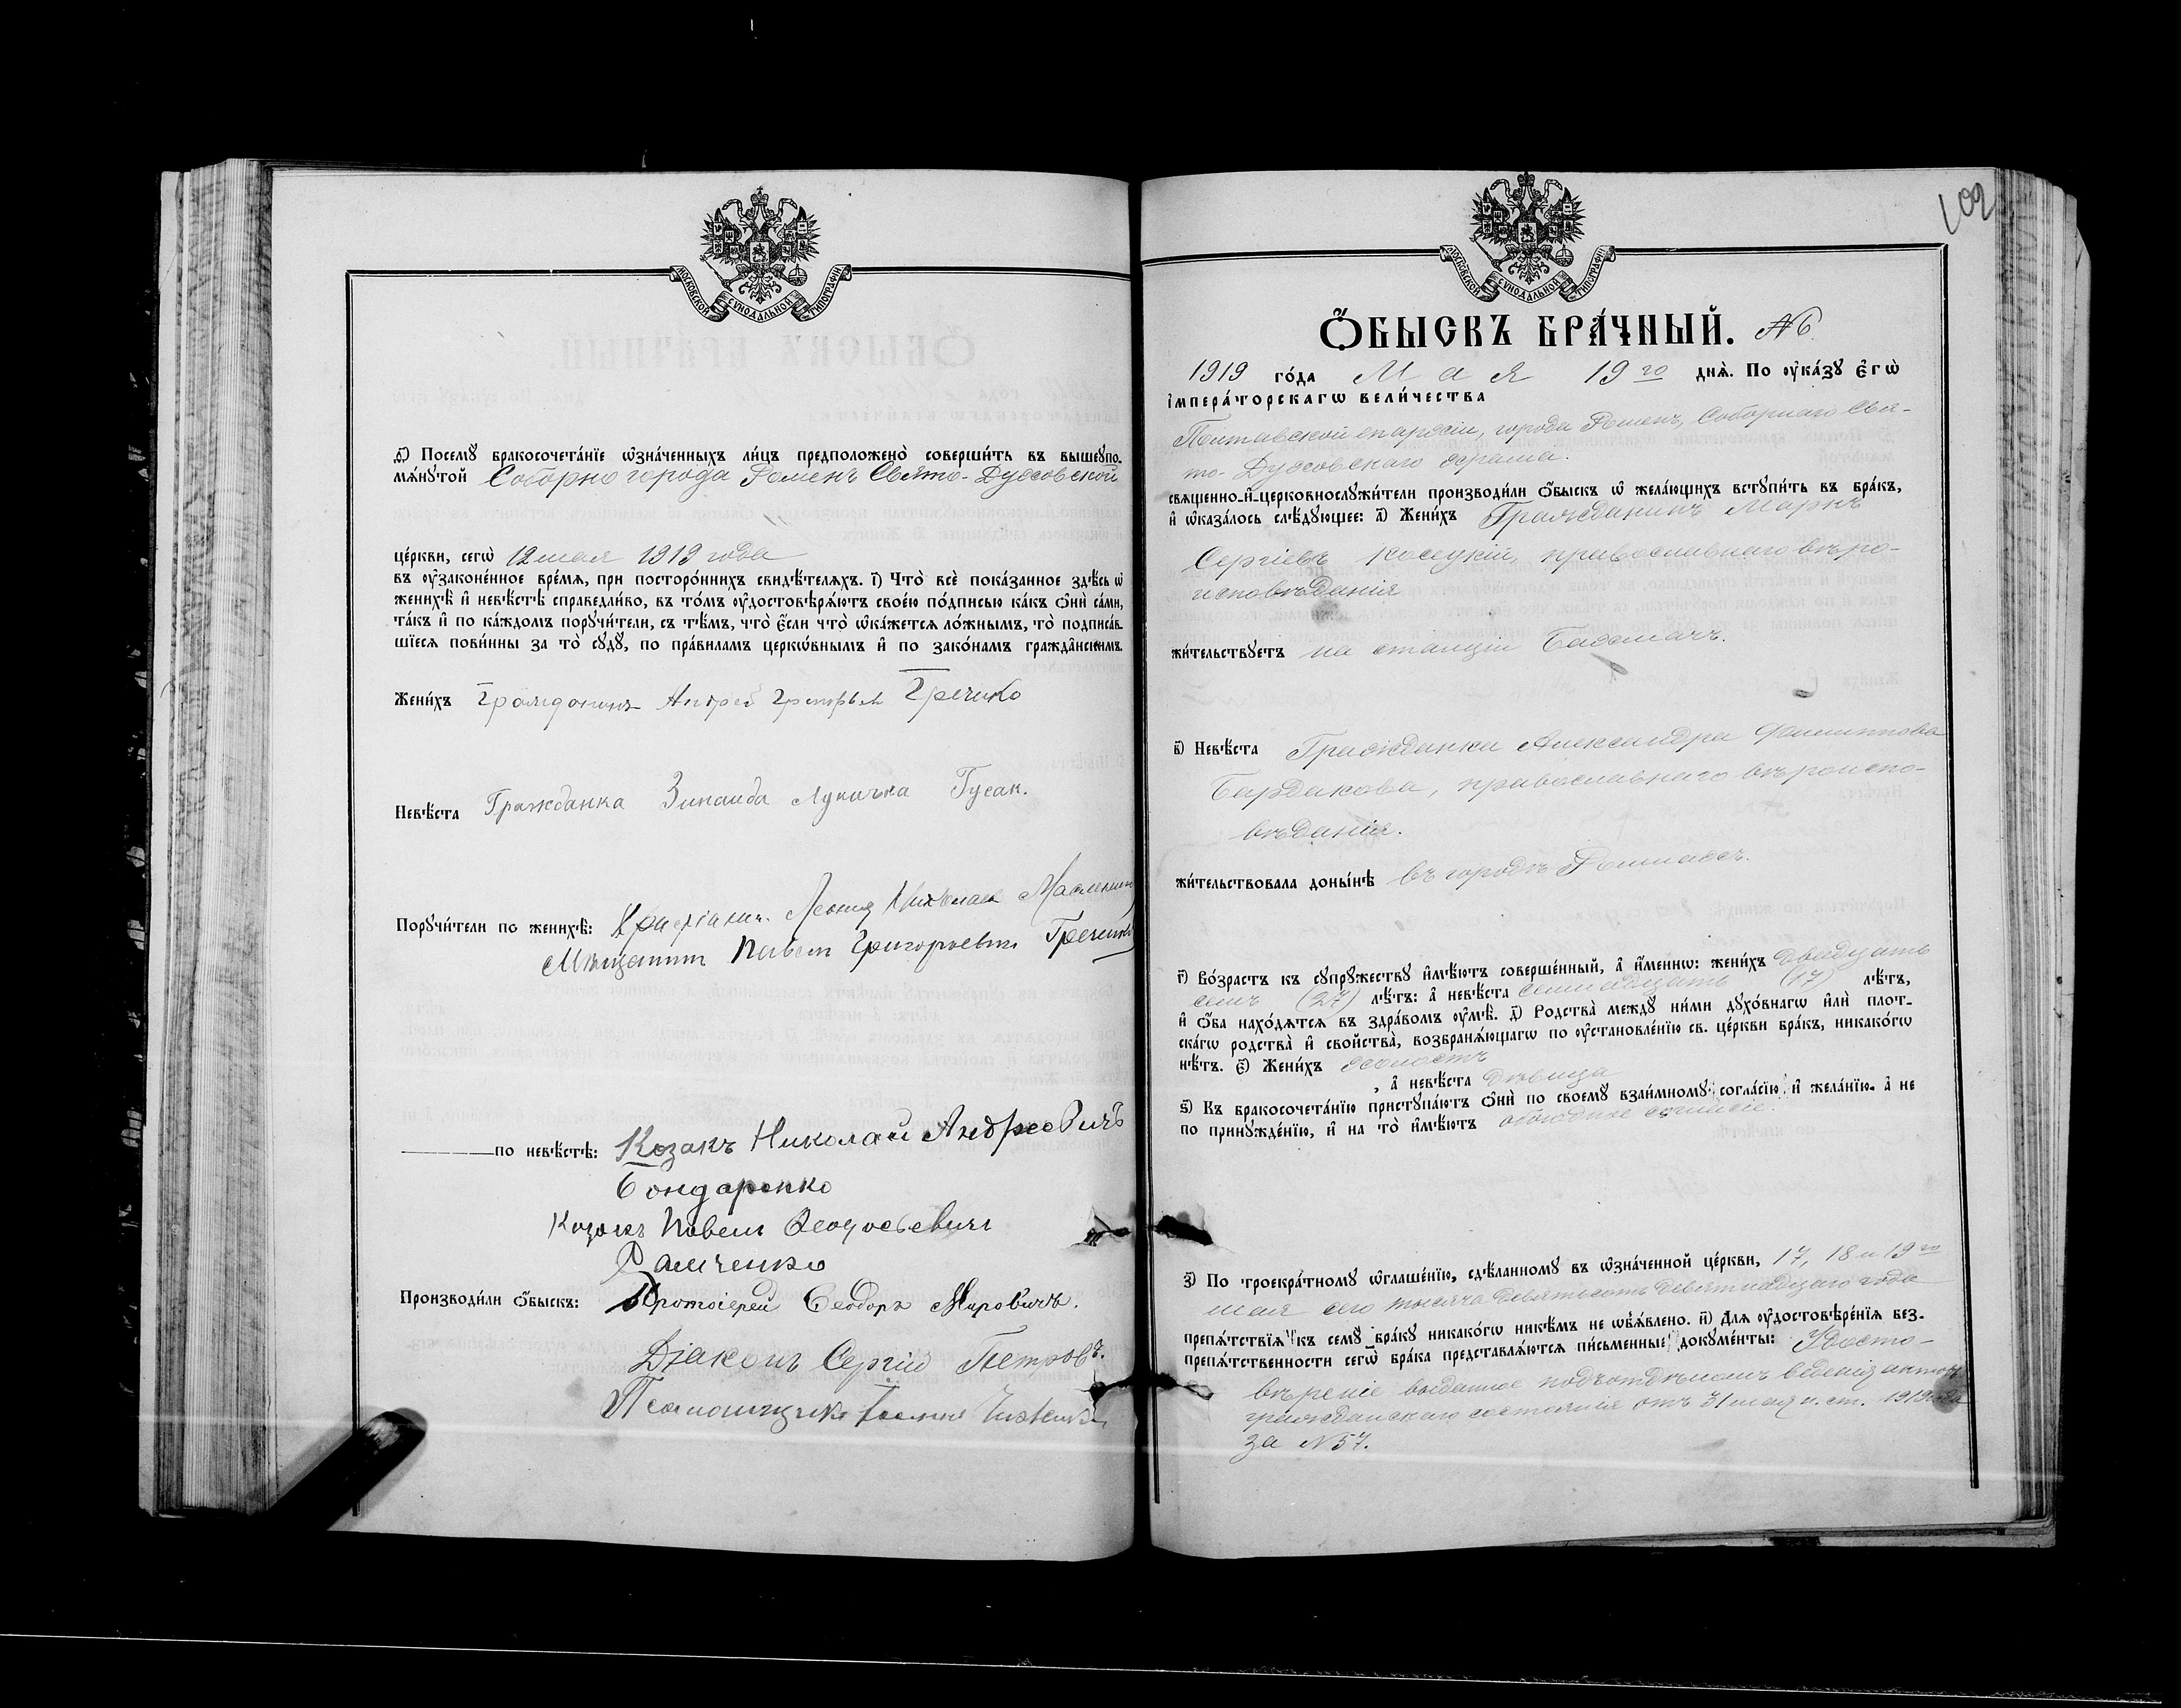 МОСКОВСКОЙ СѴНОДАЛЬНОЙ ТИПОГРАФІИ
ѳ҃) Посемꙋ̀ бракосочета́нїе ѡ҆зна́ченныхъ ли́цъ предположено̀ соверши́ть въ вышеꙋпо-
мѧ́нꙋтой Соборно города Роменъ Свято-Духовской
це́ркви, сегѡ̀ 12 мая 1919 года
въ ᲂу҆зако́ненное вре́мѧ, при посторо́ннихъ свидѣ́телѧхъ. і҃) Что̀ всѐ пока́занное здѣ́сь ѡ҆
женихѣ̀ и҆ невѣ́стѣ справедли́во, въ то́мъ ᲂу҆достовѣрѧ́ютъ свое́ю по́дписью ка́къ ѻ҆нѝ са́ми,
та́къ и҆ по ка́ждомъ порꙋчи́тели, съ тѣ́мъ, что̀ є҆́сли что̀ ѡ҆ка́жетсѧ ло́жнымъ, то̀ подписа́в-
шїесѧ пови́нны за то̀ сꙋдꙋ̀, по пра́виламъ церкѡ́внымъ и҆ по зако́намъ гражда́нскимъ.
Жени́хъ Гражданинъ Андрей Григорьев Гречко
Невѣ́ста Гражданка Зинаида Лукична Гусак.
Порꙋчи́тели по женихѣ̀: Леонид Николаев
Мѣщанин Павел Григорьевич
по невѣ́стѣ: Козакъ Николай Андреевичъ
Бондаренко
Козакъ Павелъ Феодосьевичъ
Производи́ли ѻ҆́быскъ: Протоіерей Феодоръ Мировичъ.
Діаконъ Сергій Петровъ.
Псаломщикъ
109
МОСКОВСКОЙ СѴНОДАЛЬНОЙ ТИПОГРАФІИ
Ѻ҆́БЫСКЪ БРА́ЧНЫЙ. № 6
1919 го́да Мая 19го днѧ̀. По ᲂу҆ка́зꙋ є҆гѡ̀
і҆мпера́торскагѡ вели́чества
Полтавской епархіи, города Роменъ, Соборнаго Свя-
то-Духовскаго храма.
свѧще́нно-и҆-церковнослꙋжи́тели производи́ли ѻ҆́быскъ ѡ҆ жела́ющихъ встꙋпи́ть въ бра́къ,
и҆ ѡ҆каза́лось слѣ́дꙋющее: а҃) Жени́хъ Гражданинъ Маркъ
Сергіевъ Косецкій, православнаго вѣро-
исповѣданія
жи́тельствꙋетъ на станціи Бахмачъ.
в҃) Невѣ́ста Гражданка Александра Филиппова
Бардакова, православнаго вѣроиспо-
вѣданія.
жи́тельствовала доны́нѣ въ городѣ Ромнахъ.
г҃) Во́зрастъ къ сꙋпрꙋ́жествꙋ и҆мѣ́ютъ соверше́нный, а҆ и҆́меннѡ: жени́хъ двадцать
семь (27) лѣ́тъ: а҆ невѣ́ста семнадцать (17) лѣ́тъ,
и҆ ѻ҆́ба нахо́дѧтсѧ въ здра́вомъ ᲂу҆мѣ̀. д҃) Родства̀ междꙋ̀ ни́ми дꙋхо́внагѡ и҆лѝ плот-
ска́гѡ родства̀ и҆ свойства̀, возбранѧ́ющагѡ по ᲂу҆становле́нїю св. це́ркви бра́къ, никако́гѡ
нѣ́тъ. є҃) Жени́хъ холостъ
, а҆ невѣ́ста дѣвица
ѕ҃) Къ бракосочета́нїю пристꙋпа́ютъ ѻ҆нѝ по своемꙋ̀ взаи́мномꙋ согла́сїю и҆ жела́нїю, а҆ не
по принꙋжде́нїю, и҆ на то̀ и҆мѣ́ютъ обоюдное согласіе.
з҃) По троекра́тномꙋ ѡ҆глаше́нїю, сдѣ́ланномꙋ въ ѡ҆зна́ченной це́ркви, 17, 18 и 19го
мая сего тысяча девятьсотъ девятнадцаго года
препѧ́тствїѧ къ семꙋ̀ бра́кꙋ никако́гѡ никѣ́мъ не ѡ҆б̾ѧ́влено. и҃) Длѧ ᲂу҆достовѣре́нїѧ без-
препѧ́тственности сегѡ̀ бра́ка представлѧ́ютсѧ пи́сьменные докꙋме́нты: Удосто-
вѣреніе выданное подъотдѣломъ веденія актовъ
гражданскаго состоянія отъ 31 мая н. ст. 1919 года
за № 57.